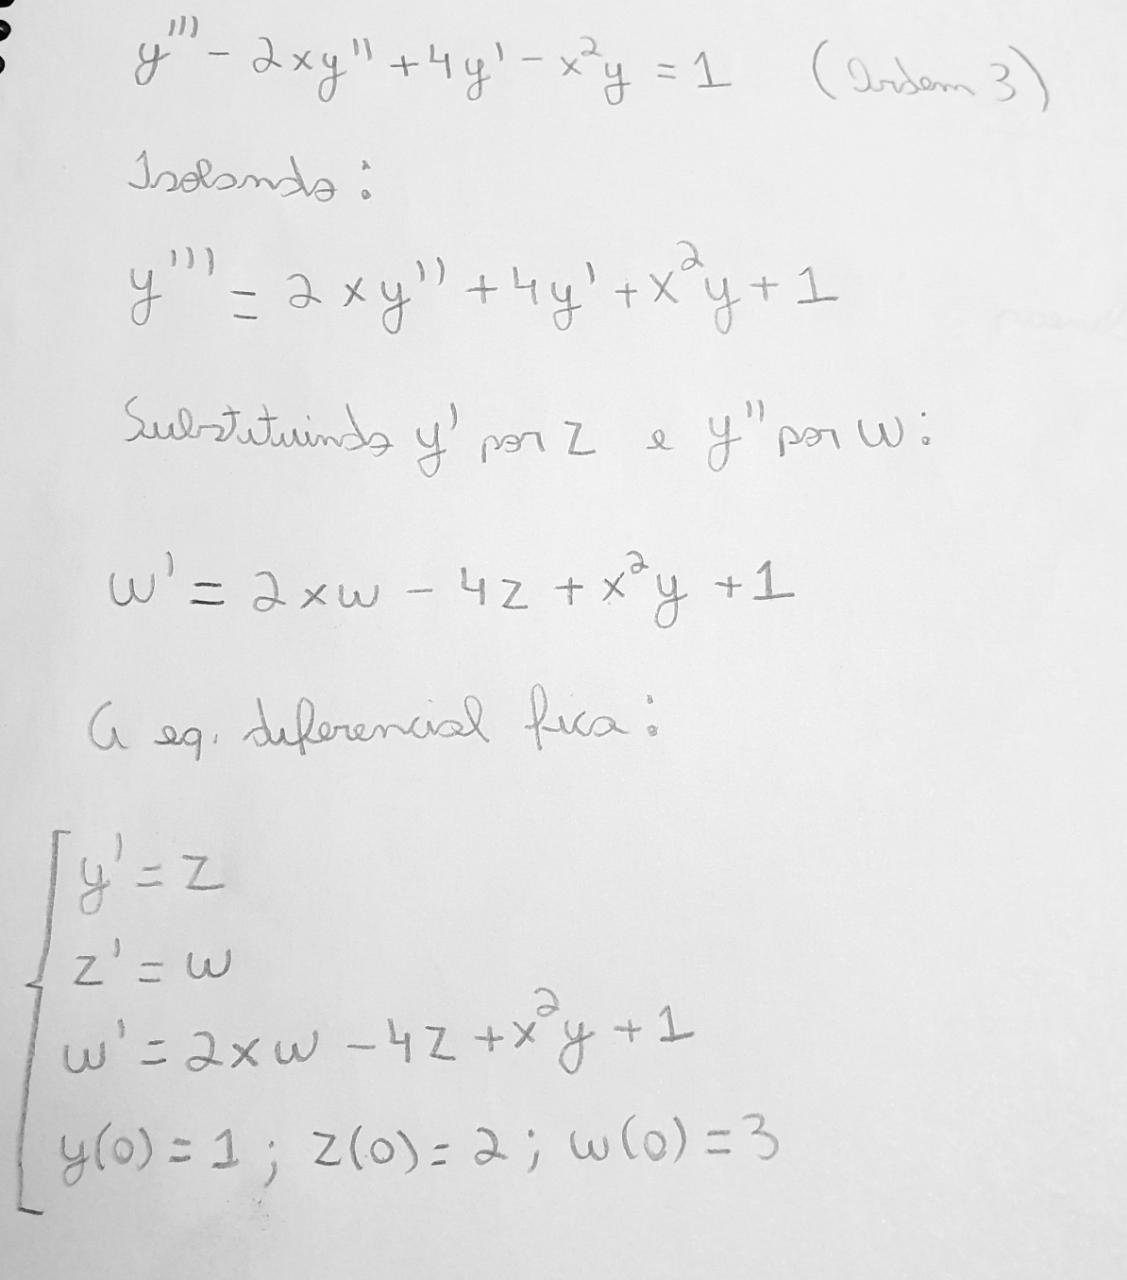 y''' - 2xy'' + 4y' - x²y = 1 (Ordem 3)
Isolando:
y''' = 2xy'' + 4y' + x²y + 1
Substituindo y' por z e y'' por w:
w' = 2xw - 4z + x²y + 1
A eq. diferencial fica:
y' = z
z' = w
w' = 2xw - 4z + x²y + 1
y(0) = 1; z(0) = 2; w(0) = 3